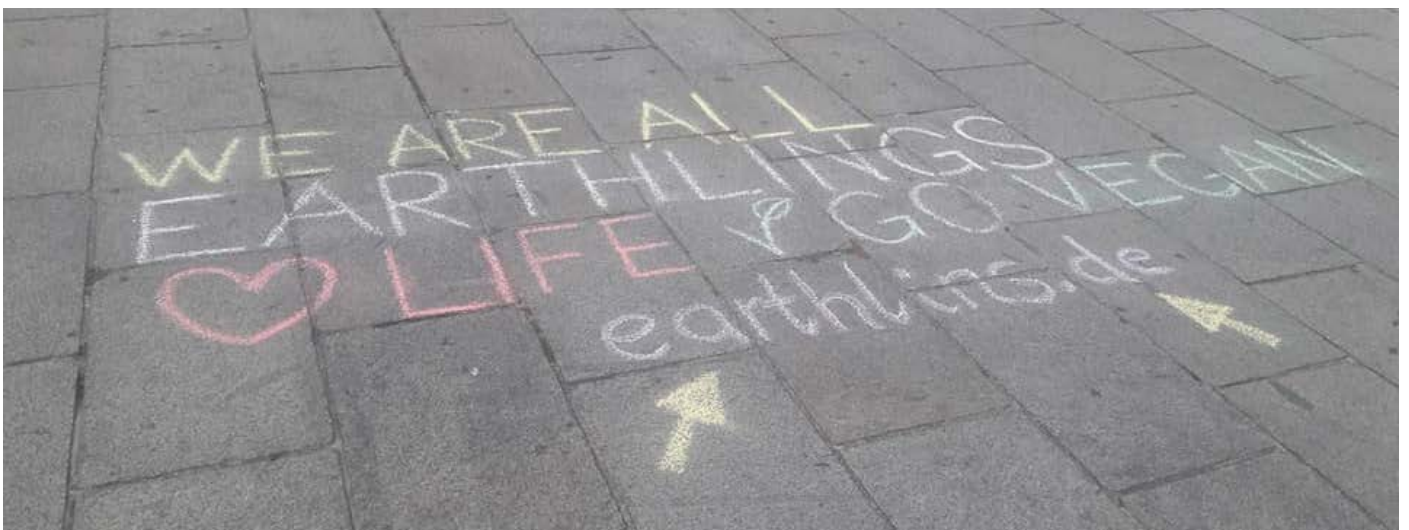 WE ARE ALL
EARTHLINGS
♡ LIFE & GO VEGAN
earthlins.de